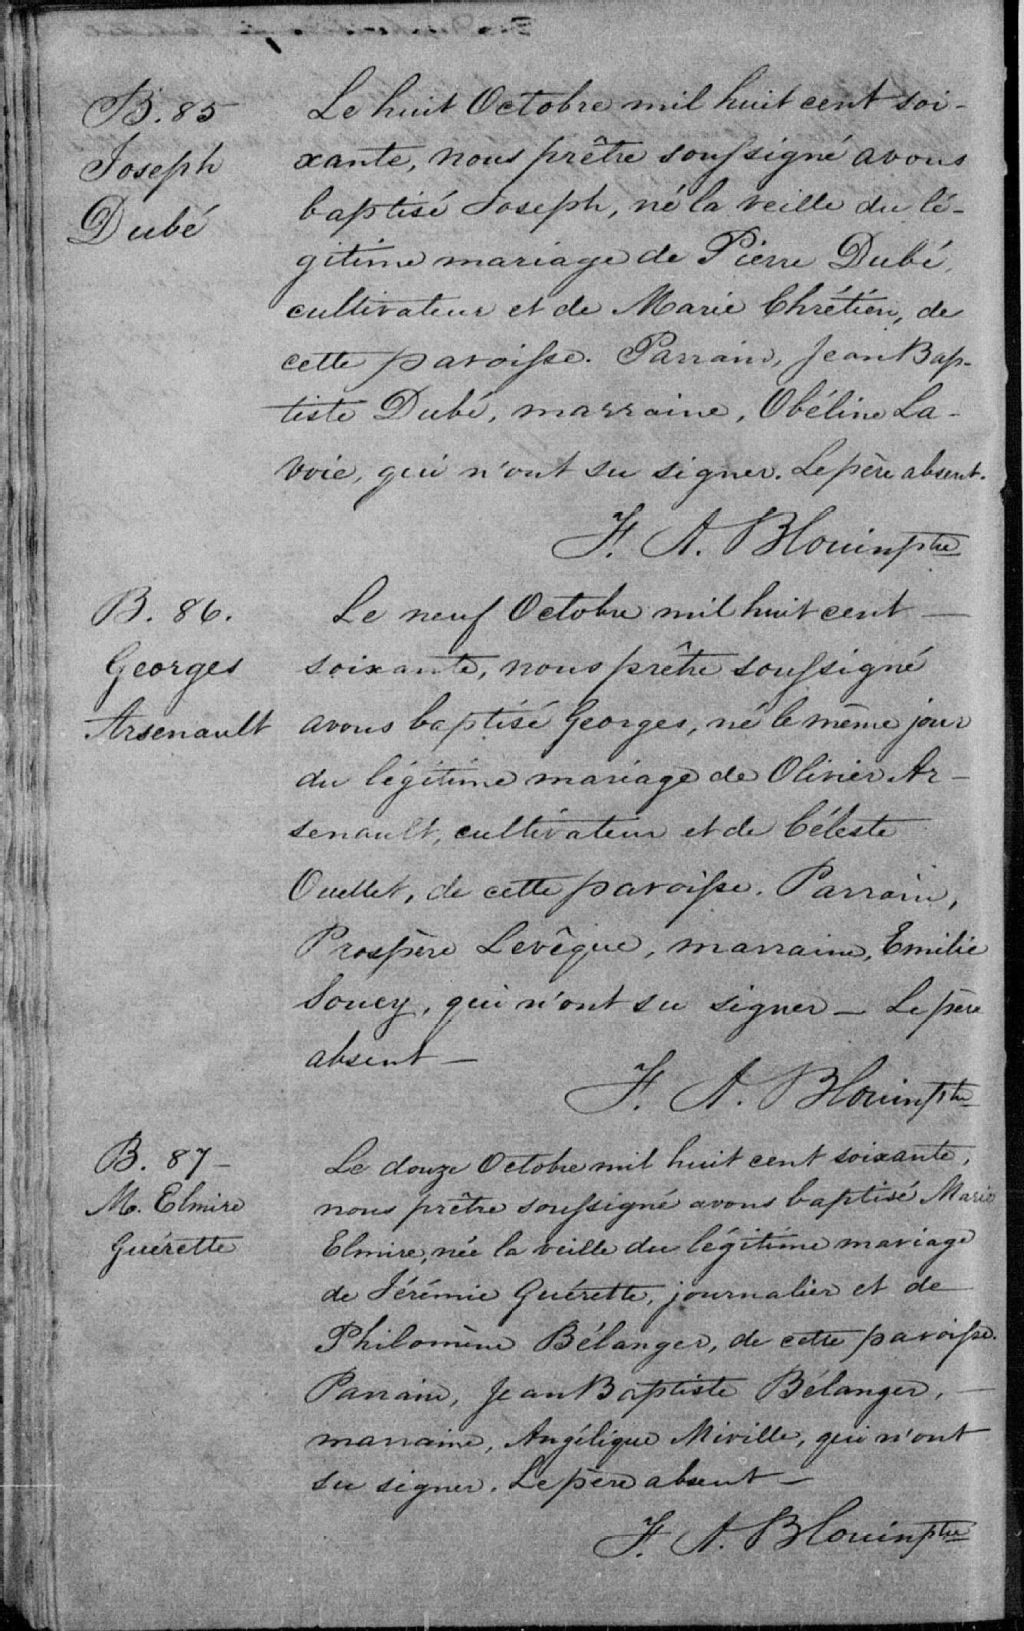 B. 85
Joseph
Dubé
Le huit Octobre mil huit cent soi-
xante, nous prêtre soussigné avons
baptisé Joseph, né la veille du lé-
gitime mariage de Pierre Dubé,
cultivateur et de Marie Chrétien, de
cette paroisse. Parrain, Jean Bap-
tiste Dubé, marraine, Obéline La-
voie, qui n'ont su signer. Le père absent.
F. A. Blouin ptre
B. 86.
Georges
Arsenault
Le neuf Octobre mil huit cent —
soixante, nous prêtre soussigné
avons baptisé Georges, né le même jour
du légitime mariage de Olivier Ar-
senault, cultivateur et de Céleste
Ouellet, de cette paroisse. Parrain,
Prospère Levêque, marraine, Emilie
Soucy, qui n'ont su signer — Le père
absent —
F. A. Blouin ptre
B. 87 -
M. Elmire
Guérette
Le douze Octobre mil huit cent soixante,
nous prêtre soussigné avons baptisé Marie
Elmire, née la veille du légitime mariage
de Jérémie Guérette, journalier et de
Philomène Bélanger, de cette paroisse.
Parrain, Jean Baptiste Bélanger, —
marraine, Angélique Miville, qui n'ont
su signer. Le père absent —
F. A. Blouin ptre